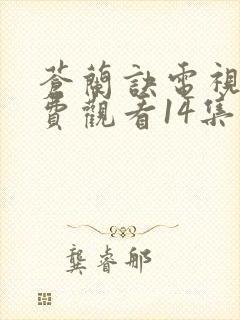 蒼蘭訣電視
費觀看14集
龔睿邮